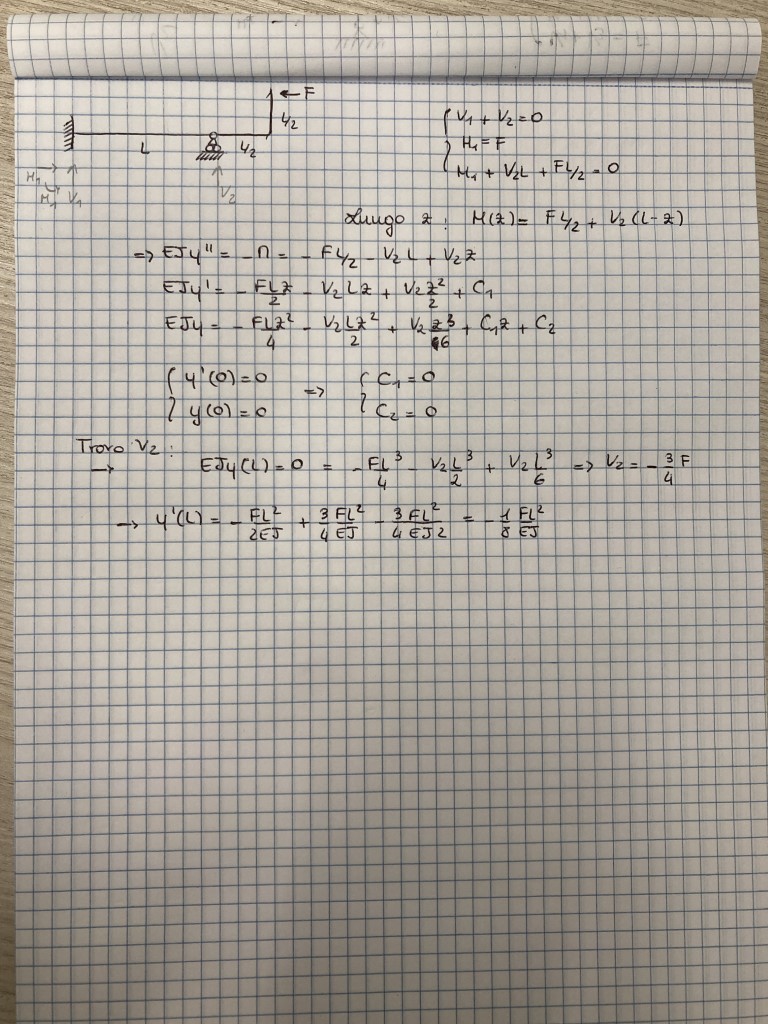 ← F
L/2
L
L/2
H₁ M₁ V₁
V₂
{ V₁ + V₂ = 0
H₁ = F
M₁ + V₂L + FL/2 = 0
Lungo z : M(z) = FL/2 + V₂(L-z)
=> EJy'' = -M = - FL/2 - V₂L + V₂z
EJy' = - FLz/2 - V₂Lz + V₂z²/2 + C₁
EJy = - FLz²/4 - V₂Lz²/2 + V₂z³/6 + C₁z + C₂
{ y'(0) = 0 => { C₁ = 0
y(0) = 0 C₂ = 0
Trovo V₂ :
→ EJy(L) = 0 = - FL³/4 - V₂L³/2 + V₂L³/6 => V₂ = - 3/4 F
→ y'(L) = - FL²/2EJ + 3/4 FL²/EJ - 3/4 FL²/EJ2 = - 1/8 FL²/EJ